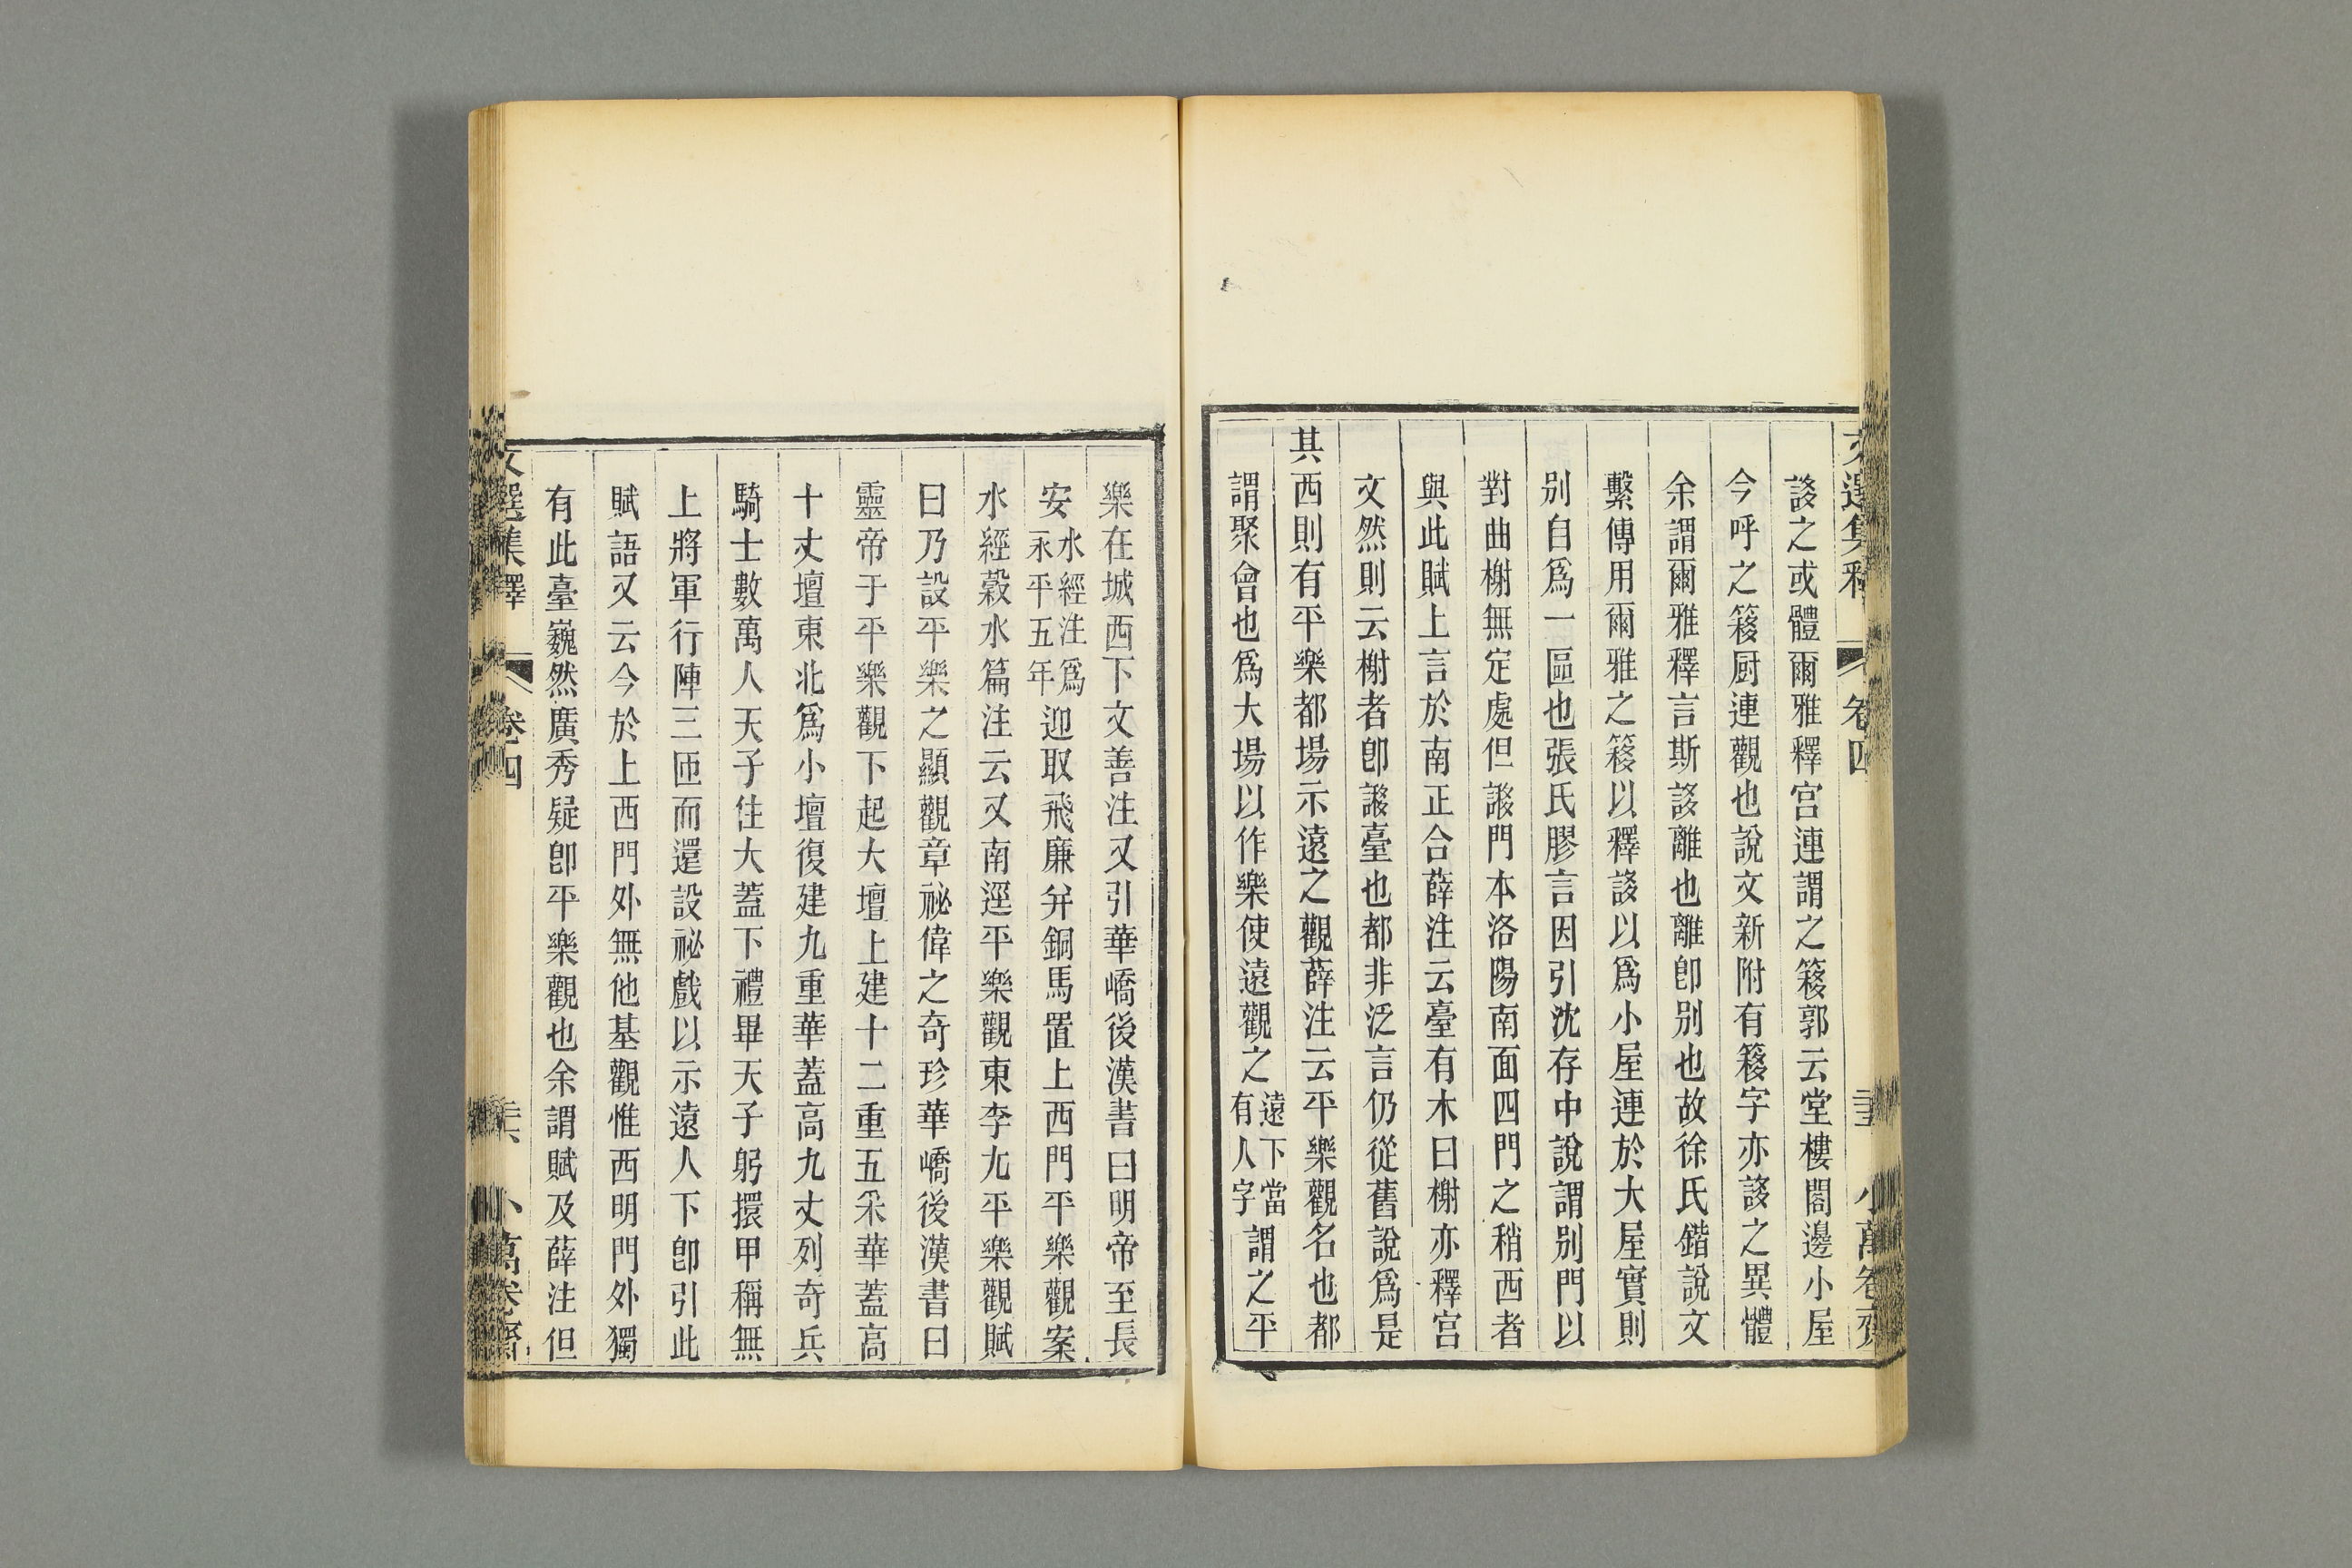 文選集釋 卷四 小萬卷齋
謻之或體爾雅釋宫連謂之簃郭云堂樓閣邊小屋
今呼之簃厨連觀也說文新附有簃字亦謻之異體
余謂爾雅釋言斯謻離也離卽别也故徐氏鍇說文
繫傳用爾雅之簃以釋謻以爲小屋連於大屋實則
别自爲一區也張氏膠言因引沈存中說謂别門以
對曲榭無定處但謻門本洛陽南面四門之稍西者
與此賦上言於南正合薛注云臺有木曰榭亦釋宫
文然則云榭者卽謻臺也都非泛言仍從舊說爲是
其西則有平樂都場示遠之觀薛注云平樂觀名也都
謂聚會也爲大場以作樂使遠觀之遠下當有人字謂之平
樂在城西下文善注又引華嶠後漢書曰明帝至長
安水經注爲永平五年迎取飛廉并銅馬置上西門平樂觀案
水經穀水篇注云又南逕平樂觀東李尤平樂觀賦
曰乃設平樂之顯觀章祕偉之奇珍華嶠後漢書曰
靈帝于平樂觀下起大壇上建十二重五采華蓋高
十丈壇東北爲小壇復建九重華蓋高九丈列奇兵
騎士數萬人天子住大蓋下禮畢天子躬擐甲稱無
上將軍行陣三匝而還設祕戲以示遠人下卽引此
賦語又云今於上西門外無他基觀惟西明門外獨
有此臺巍然廣秀疑卽平樂觀也余謂賦及薛注但
文選集釋 卷四 小萬卷齋